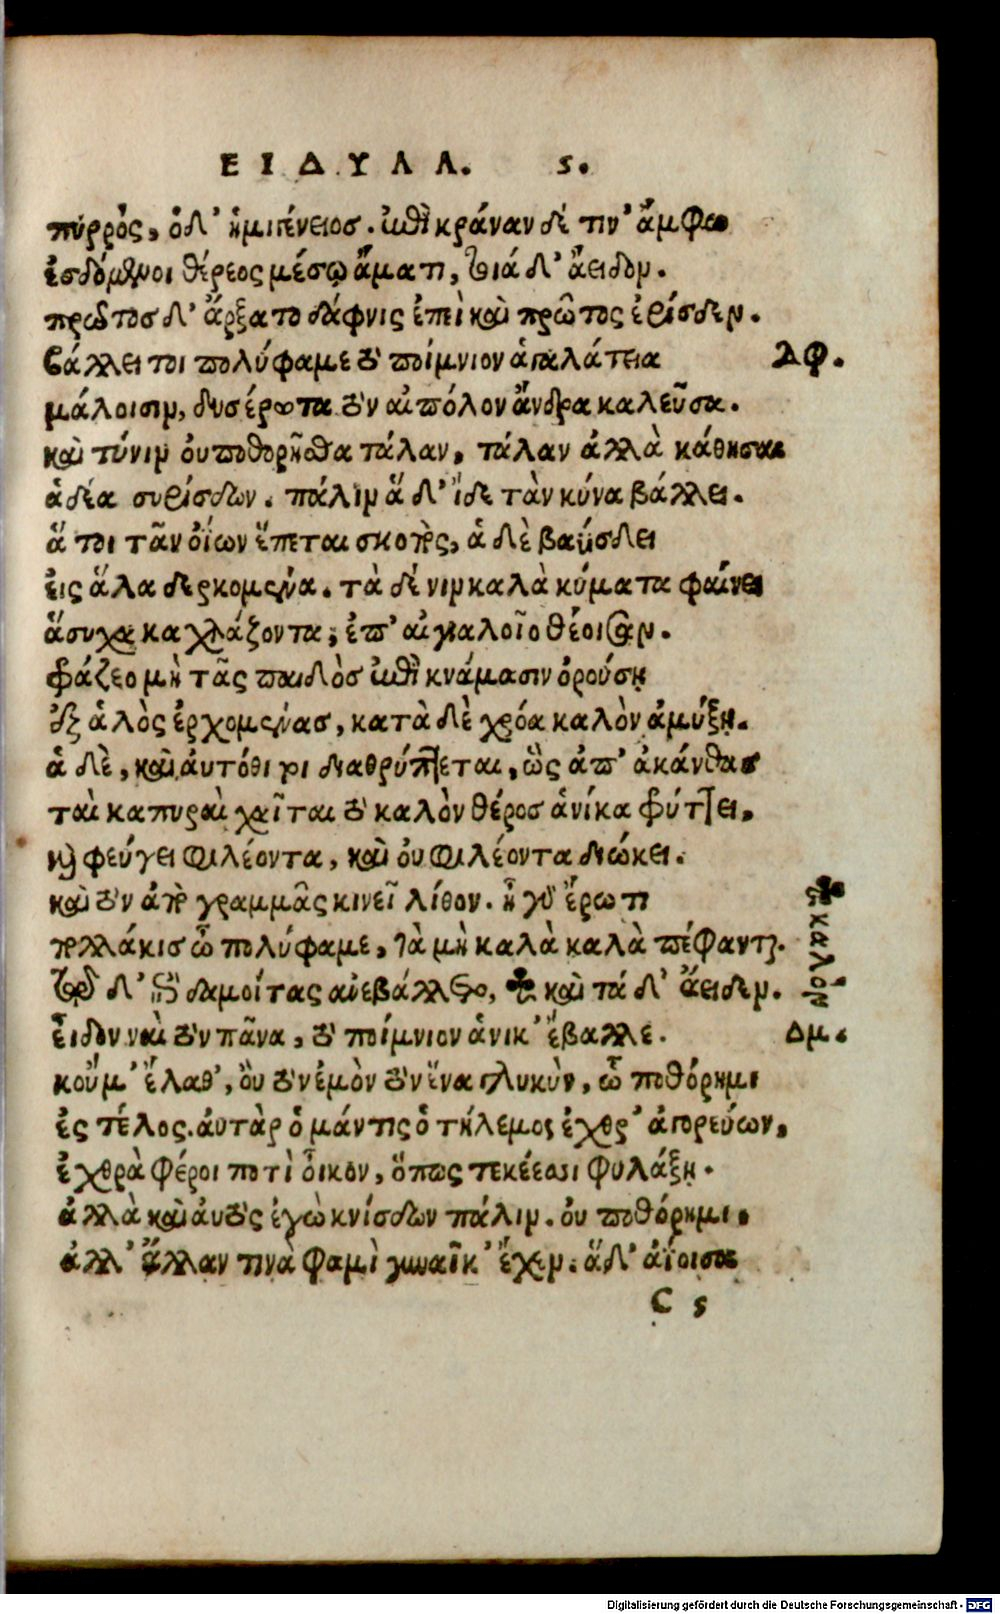 ΕΙΔΥΛΛ. ς.
πύῤῥὸς, ὁδ' ἡμιγένειος. ἐπὶ κράναν δέ τιν' ἄμφω
ἑσδόμενοι θέρεος μέσῳ ἄματι, τοιάδ' ἄειδον.
πρᾶτος δ' ἄρξατο δάφνις ἐπεὶ καὶ πρῶτος ἐρίσδεν.
βάλλει τοι πολύφαμε τὸ ποίμνιον ἁ γαλάτεια
ΔΦ.
μάλοισιν, δυσέρωτα τὸν αἰπόλον ἄνδρα καλεῦσα.
καὶ τύνιν οὐ ποθορῆσθα τάλαν, τάλαν ἀλλὰ κάθησαι
ἁδέα συρίσδων. πάλιν ἅδ' ἴδε τὰν κύνα βάλλει.
ἅ τοι τᾶν ὀΐων ἕπεται σκοπὸς, ἁ δὲ βαΰσδει
εἰς ἅλα δερκομένα. τὰ δέ νιν καλὰ κύματα φαίνει
ἅσυχα καχλάζοντα, ἐπ' αἰγιαλοῖο θέοισαν.
φράζεο μὴ τᾶς παιδὸς ἐπὶ κνάμασιν ὀρούσῃ
ἐξ ἁλὸς ἐρχομένας, κατὰ δὲ χρόα καλὸν ἀμύξῃ.
ἁ δὲ, καὶ αὐτόθι τοι διαθρύπτεται, ὣς ἀπ' ἀκάνθας
ταὶ καπυραὶ χαῖται τὸ καλὸν θέρος ἁνίκα φρύττει,
καὶ φεύγει φιλέοντα, καὶ οὐ φιλέοντα διώκει.
καὶ τὸν ἀπὸ γραμμᾶς κινεῖ λίθον. ἦ γὰρ ἔρωτι
πολλάκις ὦ πολύφαμε, τὰ μὴ καλὰ καλὰ πέφανται.
τῷ δ' ἐπὶ δαμοίτας ἀνεβάλλετο, ♣ καὶ τάδ' ἄειδεν.
♣ καλὸν
εἶδον ναὶ τὸν πᾶνα, τὸ ποίμνιον ἁνίκ' ἔβαλλε.
Δμ.
κοὔ μ' ἔλαθ', οὐ τὸν ἐμὸν τὸν ἕνα γλυκὺν, ὧ ποθόρημι
ἐς τέλος. αὐτὰρ ὁ μάντις ὁ τήλεμος ἐχθρ' ἀγορεύων,
ἐχθρὰ φέροι ποτὶ οἶκον, ὅπως τεκέεσσι φυλάξῃ.
ἀλλὰ καὶ αὐτὸς ἐγὼ κνίσδων πάλιν. οὐ ποθόρημι.
ἀλλ' ἄλλαν τινὰ φαμὶ γυναῖκ' ἔχεν. ἅδ' ἀΐοισα
C ς
Digitalisierung gefördert durch die Deutsche Forschungsgemeinschaft - DFG